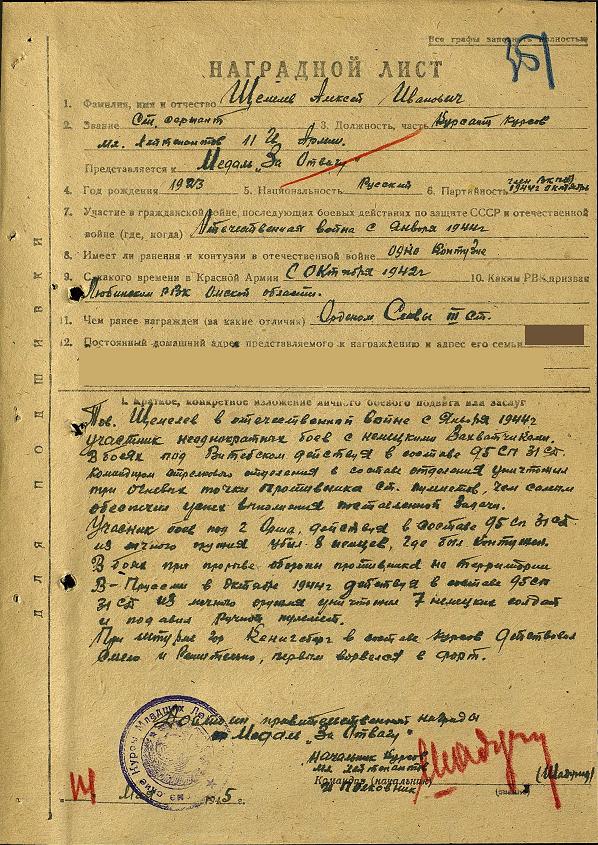 Все графы заполнять полностью
351
НАГРАДНОЙ ЛИСТ
1. Фамилия, имя и отчество Щемелев Алексей Иванович
2. Звание Ст. сержант 3. Должность, часть Курсант курсов
мл. лейтенантов 11 Гв. Армии.
Представляется к Медаль "За Отвагу"
4. Год рождения 1923 5. Национальность Русский 6. Партийность член ВКП(б) 1944г октябрь
7. Участие в гражданской войне, последующих боевых действиях по защите СССР и отечественной
войне (где, когда) Отечественная война с Января 1944г
8. Имеет ли ранения и контузии в отечественной войне одна контузия
9. С какого времени в Красной Армии С Октября 1942г 10. Каким РВК призван
Любинским РВК Омской области.
11. Чем ранее награжден (за какие отличия) Орденом Славы III ст.
12. Постоянный домашний адрес представляемого к награждению и адрес его семьи
I. Краткое, конкретное изложение личного боевого подвига или заслуг
Тов. Щемелев в отечественной войне с Января 1944г
участник неоднократных боев с немецкими Захватчиками.
В боях под Витебском действуя в составе 95 СП 31 СД
командиром стрелкового отделения в составе отделения уничтожил
три огневых точки противника ст. пулеметов, чем самым
обеспечил успех выполнения поставленной задачи.
Учасник боев под г Орша, действуя в составе 95 сп 31 сд
из личного оружия убил 8 немцев, где был контужен.
В боях при прорыве обороны противника на территории
В-Пруссии в Октябре 1944г действуя в составе 95 СП
31 СД из личного оружия уничтожил 7 немецких солдат
и подавил Ручной пулемет.
При штурме гор Кенигсберг в составе курсов действовал
смело и Решительно, первым ворвался в форт.
Достоин правительственной награды
Медаль "За Отвагу"
Начальник Курсов
мл лейтенантов
Командир (начальник)
П Полковник (Шабуну)
1945 г.
ДЛЯ ПОДШИВКИ